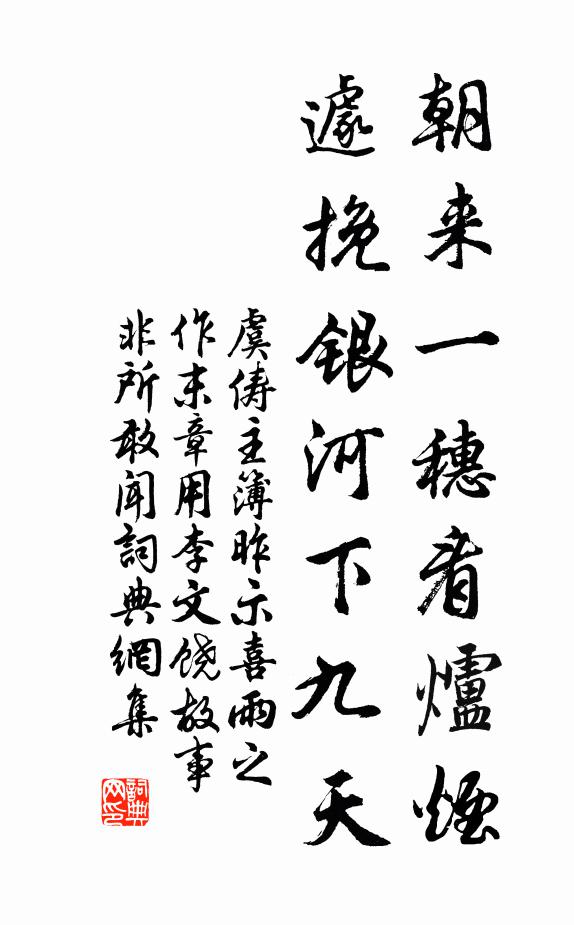 朝来一穗看爐煙
遽挽銀河下九天
虞俦主簿昨示喜雨之
作末章用李文饶故事
非所敢闻詞典網集
詞典网印